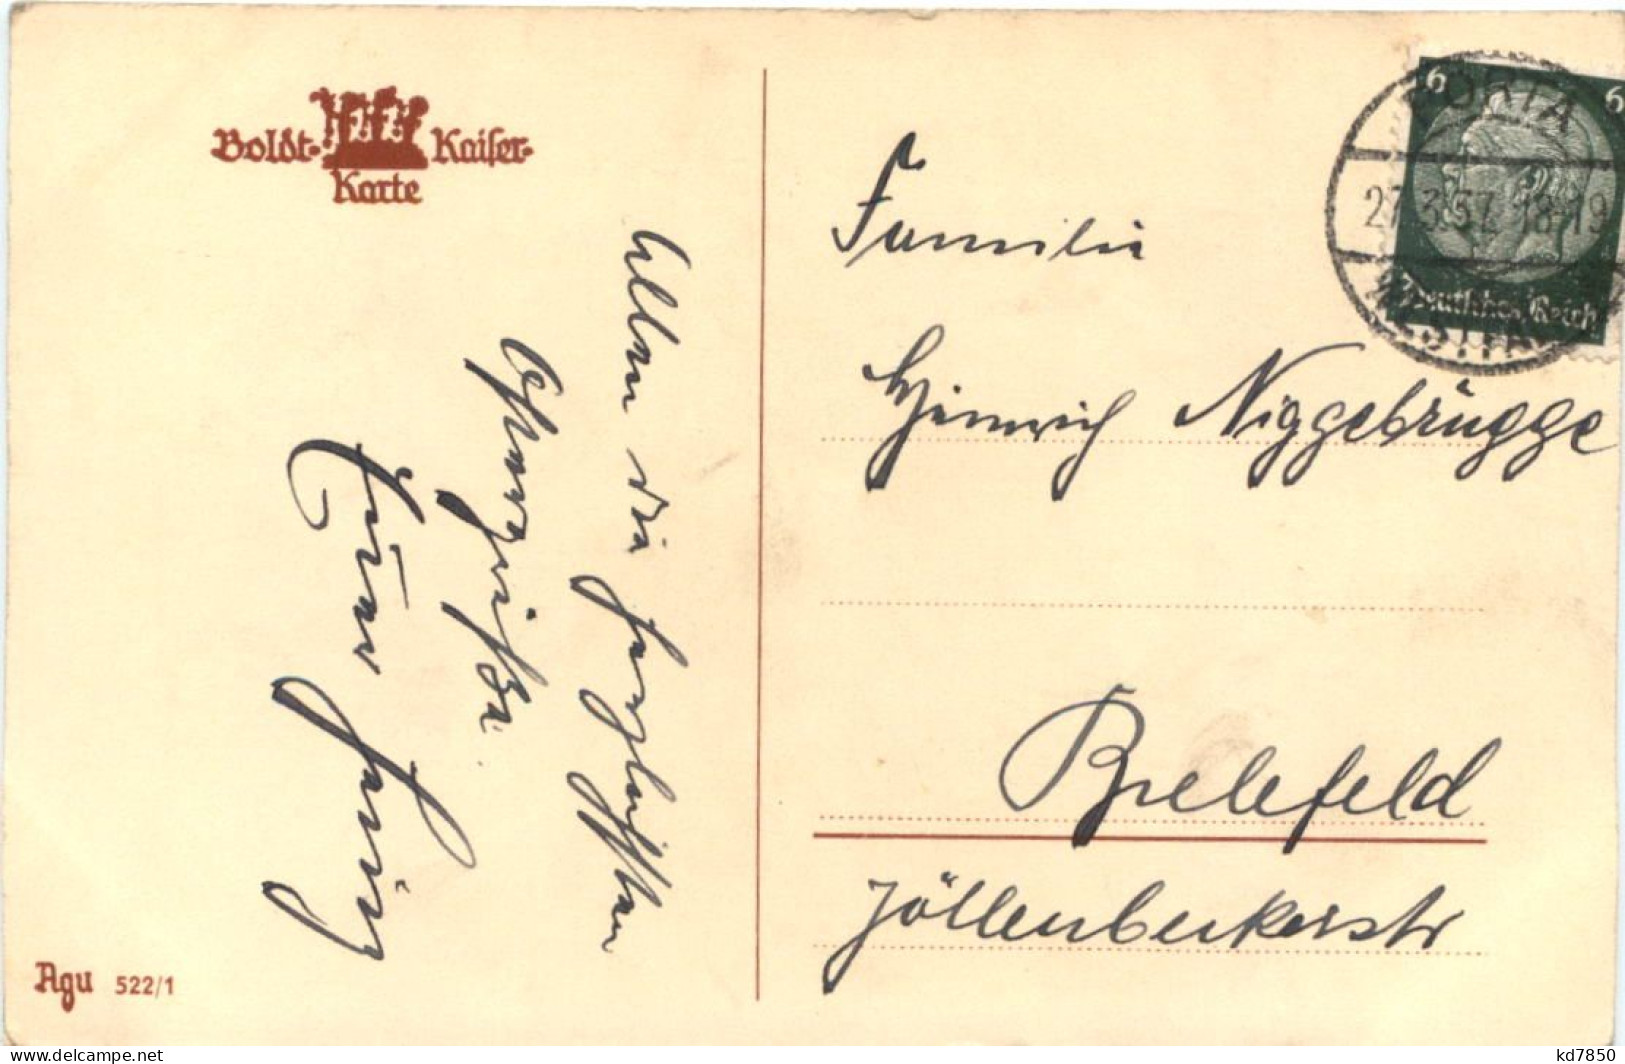 Boldt- Kaiser-
Karte
Allen die herzlichsten
Ostergrüße.
Familie
Heinrich Niggebrügge
Bielefeld
Jöllenbeckerstr
PORTA
27.3.37. 18-19
WESTFA
6 6
Deutsches Reich
Agu 522/1
www.delcampe.net
kd7850